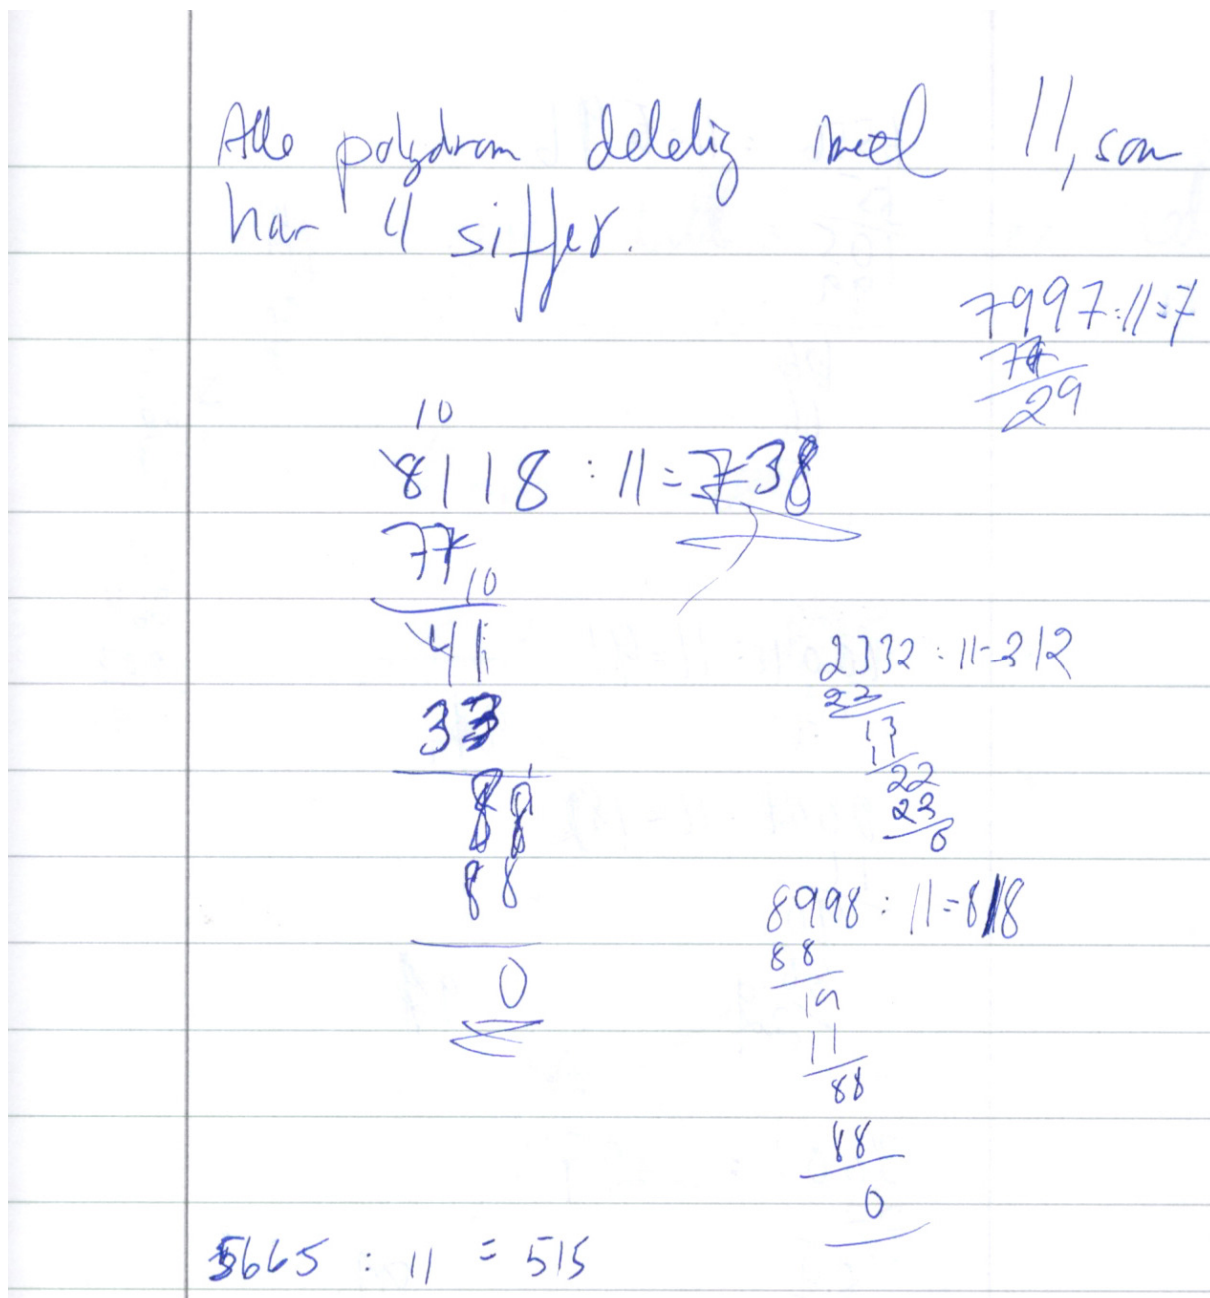 Alle polydrom delelig med 11, som
har 4 siffer.
7997:11=7
77
29
10
8118 : 11 = 738
77
10
41
33
88
88
0
2332 : 11=212
22
13
11
22
22
0
8998 : 11=818
88
19
11
88
88
0
5665 : 11 = 515